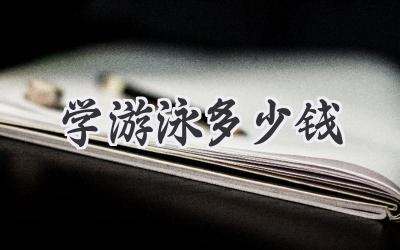 学游泳多少钱